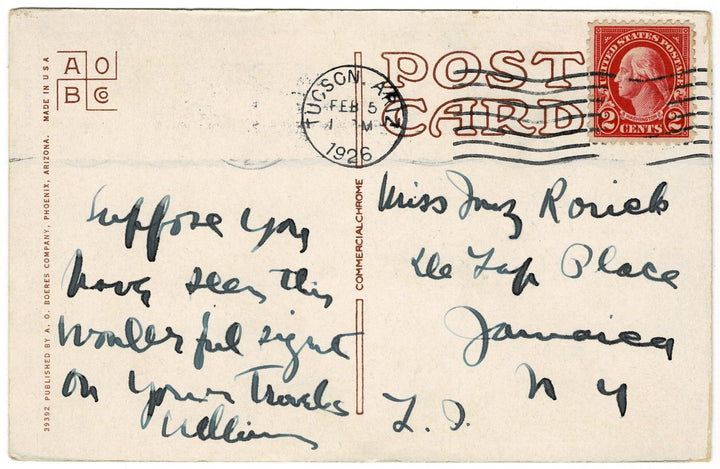 A O
B Co
POST
CARD
UNITED STATES POSTAGE
WASHINGTON
2 CENTS 2
TUCSON, ARIZ
FEB 5
M
1926
Suppose you
have seen this
wonderful sight
on your travels
William
Miss Inez Rorick
Place
Jamaica
N Y
L. I.
COMMERCIALCHROME
39392 PUBLISHED BY A. O. BOERES COMPANY, PHOENIX, ARIZONA. MADE IN U S A